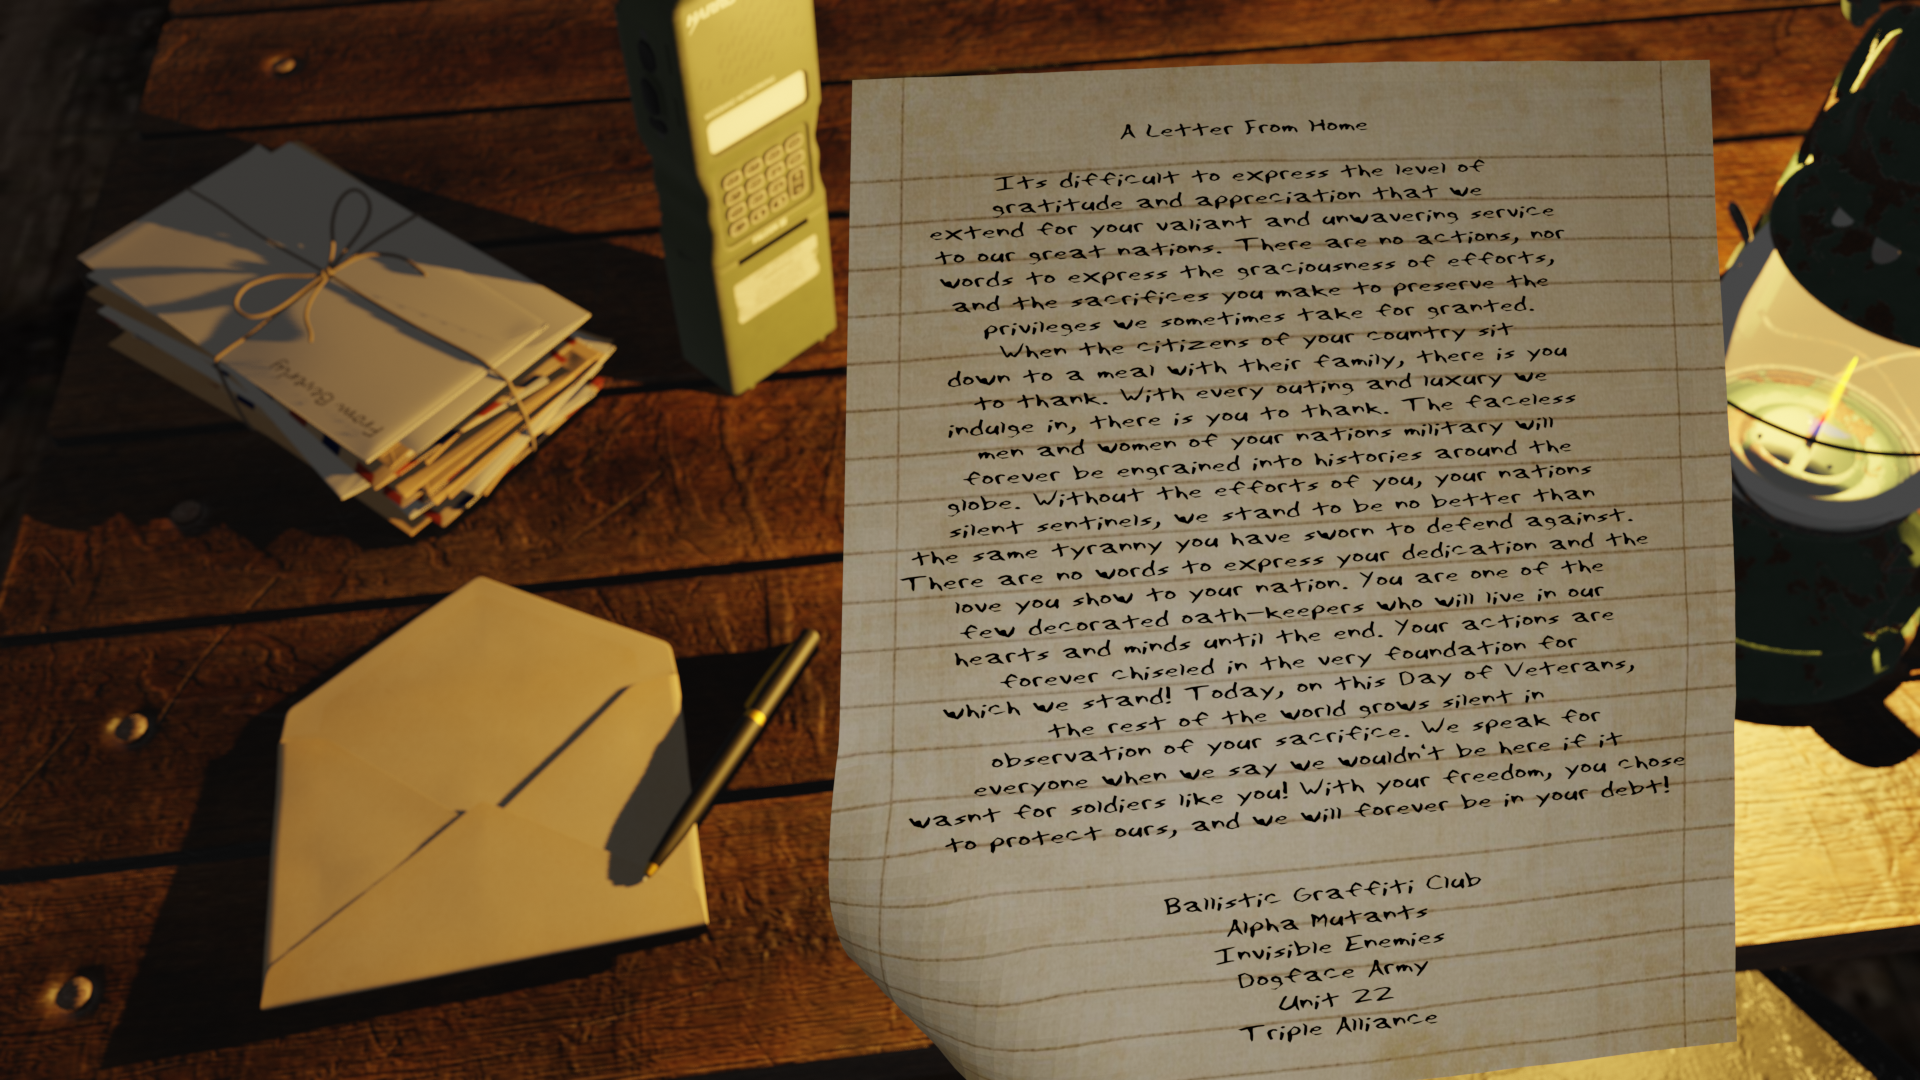 A Letter From Home
Its difficult to express the level of
gratitude and appreciation that we
extend for your valiant and unwavering service
to our great nations. There are no actions, nor
words to express the graciousness of efforts,
and the sacrifices you make to preserve the
privileges we sometimes take for granted.
When the citizens of your country sit
down to a meal with their family, there is you
to thank. With every outing and luxury we
indulge in, there is you to thank. The faceless
men and women of your nations military will
forever be engrained into histories around the
globe. Without the efforts of you, your nations
silent sentinels, we stand to be no better than
the same tyranny you have sworn to defend against.
There are no words to express your dedication and the
love you show to your nation. You are one of the
few decorated oath-keepers who will live in our
hearts and minds until the end. Your actions are
forever chiseled in the very foundation for
which we stand! Today, on this Day of Veterans,
the rest of the world grows silent in
observation of your sacrifice. We speak for
everyone when we say we wouldn't be here if it
wasnt for soldiers like you! With your freedom, you chose
to protect ours, and we will forever be in your debt!
Ballistic Graffiti Club
Alpha Mutants
Invisible Enemies
Dogface Army
Unit 22
Triple Alliance
From Beverly